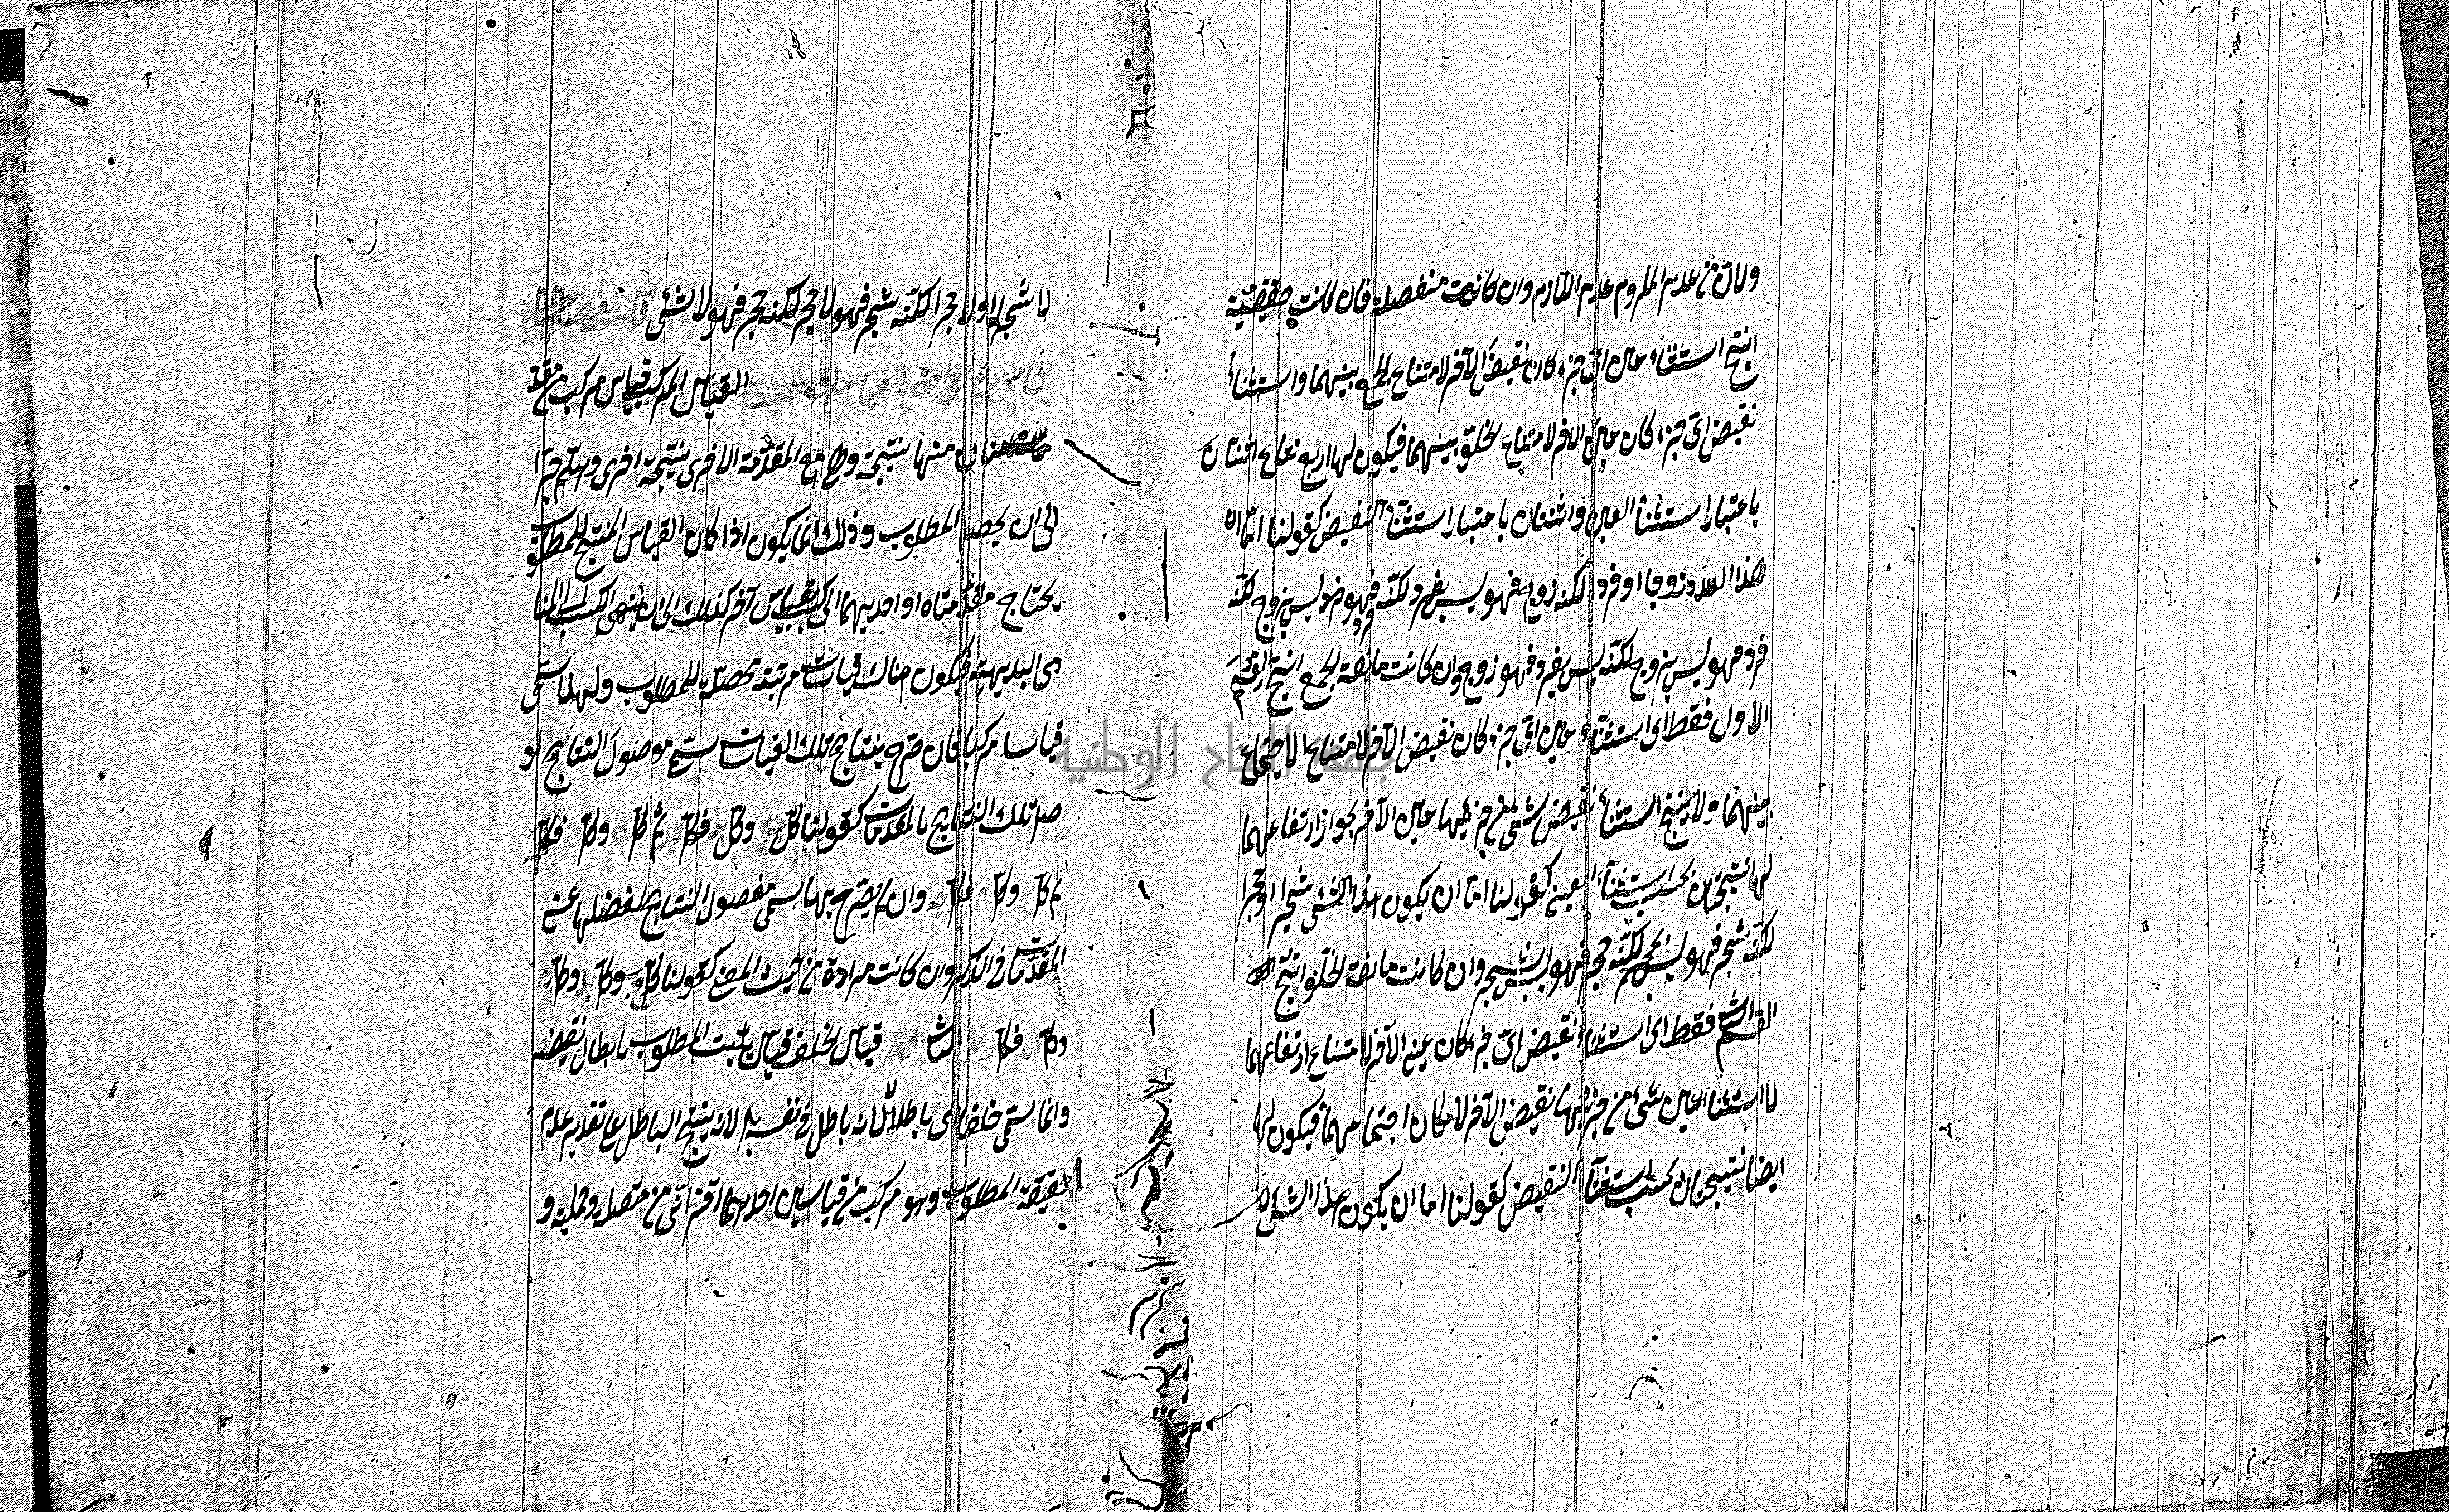 ولا من عدم الملزوم عدم اللازم وان كانت منفصلة فان كانت حقيقية
انتج استثناء عين اى جزء كان نقيض الآخر لامتناع الجمع بينهما واستثناء
نقيض اى جزء كان عين الآخر لامتناع الخلو بينهما فيكون لها اربع نتايج اثنتان
باعتبار استثناء العين واثنتان باعتبار استثناء النقيض كقولنا اما ان
هذا العدد زوجا او فردا لكنه زوج فهو ليس بفرد لكنه فرد فهو ليس بزوج لكنه
فرد فهو ليس بزوج لكنه ليس بفرد فهو زوج وان كانت مانعة الجمع انتج القسم
الاول فقط اى استثناء عين اى جزء كان نقيض الآخر لامتناع الاجتماع
بينهما ولا ينتج استثناء نقيض شئ من جزئيها عين الآخر لجواز ارتفاعهما
لها نتيجتان بحسب استثناء العين كقولنا اما ان يكون هذا الشئ شجرا او حجرا
لكنه شجر فهو ليس بحجر لكنه حجر فهو ليس بشجر وان كانت مانعة الخلو انتج
القسم الثانى فقط اى استثناء نقيض اى جزء كان عين الآخر لامتناع ارتفاعهما
لا استثناء عين شئ من جزئيها نقيض الآخر لامكان اجتماعهما فيكون لها
ايضا نتيجتان بحسب استثناء النقيض كقولنا اما ان يكون هذا الشئ
لا شجرا او لا حجرا لكنه شجر فهو لا حجر لكنه حجر فهو لا شجر
القياس المركب قياس مركب من مقدمات
منها نتيجة وهى مع المقدمة الاخرى نتيجة اخرى وهلم جرا
الى ان يحصل المطلوب وذلك انما يكون اذا كان القياس المنتج للمطلوب
يحتاج مقدمتاه او احديهما الى كسب بقياس آخر كذلك الى ان ينتهى الكسب الى المبادى
البديهية فيكون هناك قياسات مرتبة محصلة للمطلوب ولهذا سمى
قياسا مركبا فان صرح بنتايج تلك القياسات سمى موصول النتايج لو
صل تلك النتايج بالمقدمات كقولنا كل وكل فكل ثم كل وكل فكل
ثم كل وكل فكل وان لم يصرح بها سمى مفصول النتايج لفصلها عن
المقدمات فى الذكر وان كانت مرادة من حيث المعنى كقولنا كل وكل وكل
وكل فكل قياس الخلف قياس يثبت المطلوب بابطال نقيضه
وانما سمى خلفا اى باطلا لا لانه باطل فى نفسه بل لانه ينتج الباطل على تقدير عدم
حقيقة المطلوب وهو مركب من قياسين احدهما اقترانى من متصلة وحملية و